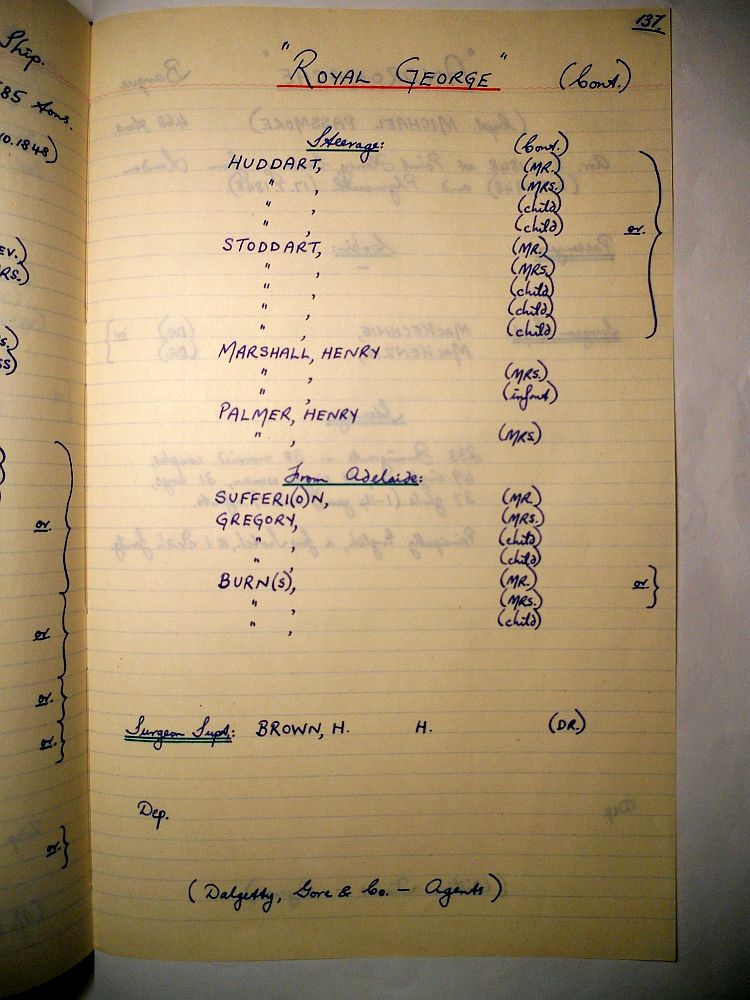 Ship.
85 tons.
10.1848)
EV.)
RS.)
S.)
SS)
or.
or.
or.
or.
or.
137.
"ROYAL GEORGE" (Cont.)
Steerage: (Cont.)
HUDDART, (MR.)
" , (MRS.)
" , (child)
" , (child) or.
STODDART, (MR.)
" , (MRS.)
" , (child)
" , (child)
" , (child)
MARSHALL, HENRY
" , (MRS.)
" , (infant)
PALMER, HENRY
" , (MRS.)
From Adelaide:
SUFFERI(O)N, (MR.)
GREGORY, (MRS.)
" , (child)
" , (child)
BURN(S), (MR.) or.
" , (MRS.)
" , (child)
Surgeon Supt.: BROWN, H. H. (DR.)
Dep.
(Dalgetty, Gore & Co. — Agents)